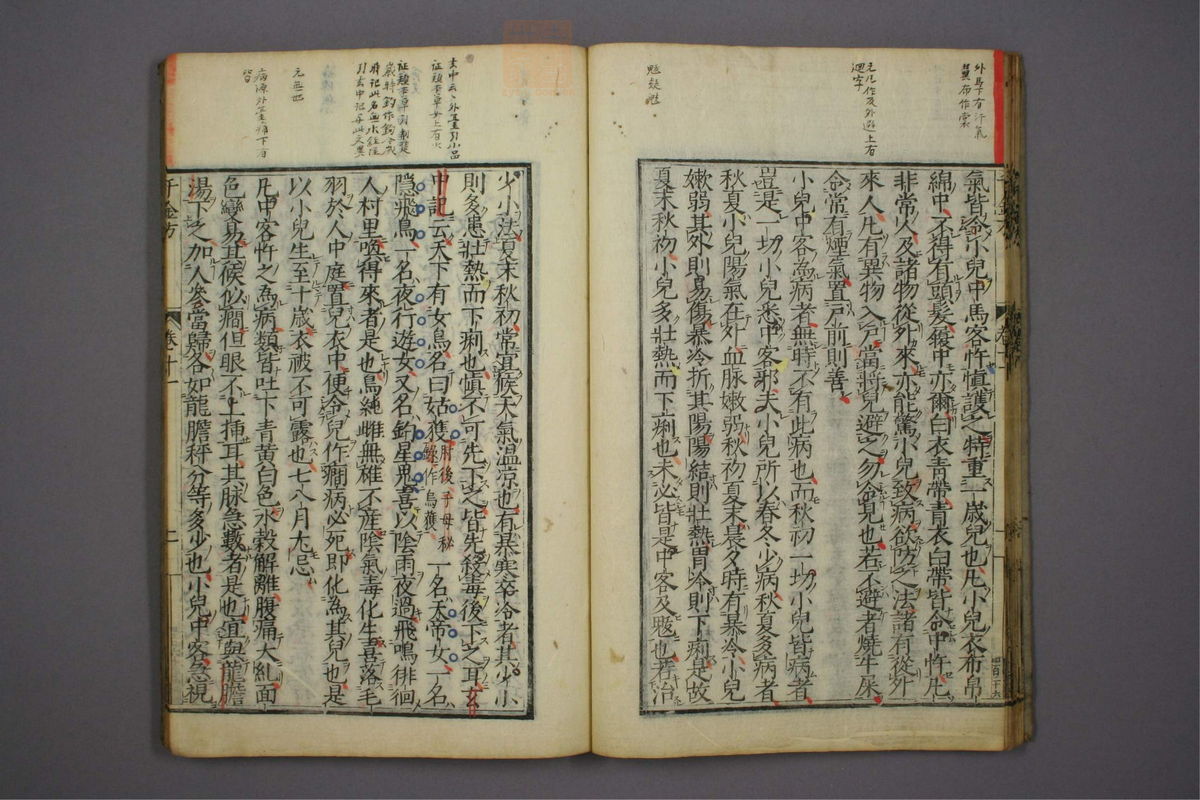 外馬下有汗氣
四百二十六
氣皆令小兒中馬客忤慎護之特重一歲兒也凡小兒衣布帛
綿中不得有頭髮履中亦爾白衣青帶青衣白帶皆令中忤凡
非常人及諸物從外來亦能驚小兒致病欲防之法諸有從外
來人凡有異物入戶當將兒避之勿令見也若不避者燒牛屎
令常有煙氣置戶前則善
小兒中客為病者無時不有此病也而秋初一切小兒皆病者
豈是一切小兒悉中客邪夫小兒所以春冬少病秋夏多病者
秋夏小兒陽氣在外血脉嫩弱秋初夏末晨夕時有暴冷小兒
嫩弱其外則易傷暴冷折其陽陽結則壯熱胃冷則下痢是故
夏末秋初小兒多壯熱而下痢也未必皆是中客及鬾也若治
少小法夏末秋初常宜候天氣溫涼也有暴寒卒冷者其少小
則多患壯熱而下痢也慎不可先下之皆先殺毒後下之耳玄
中記云天下有女鳥名曰姑獲肘後子母秘錄作烏獲一名天帝女一名
隱飛鳥一名夜行遊女又名鈎星鬼喜以陰雨夜過飛鳴徘徊
人村里喚得來者是也鳥純雌無雄不産陰氣毒化生喜落毛
羽於人中庭置兒衣中便令兒作癇病必死即化為其兒也是
以小兒生至十歲衣被不可露也七八月尤忌
凡中客忤之為病類皆吐下青黃白色水穀解離腹痛夭糺面
色變易其候似癇但眼不上揷耳其脉急數者是也宜與龍膽
湯下之加人參當歸各如龍膽秤分等多少也小兒中客急視
千金方 卷十一 二